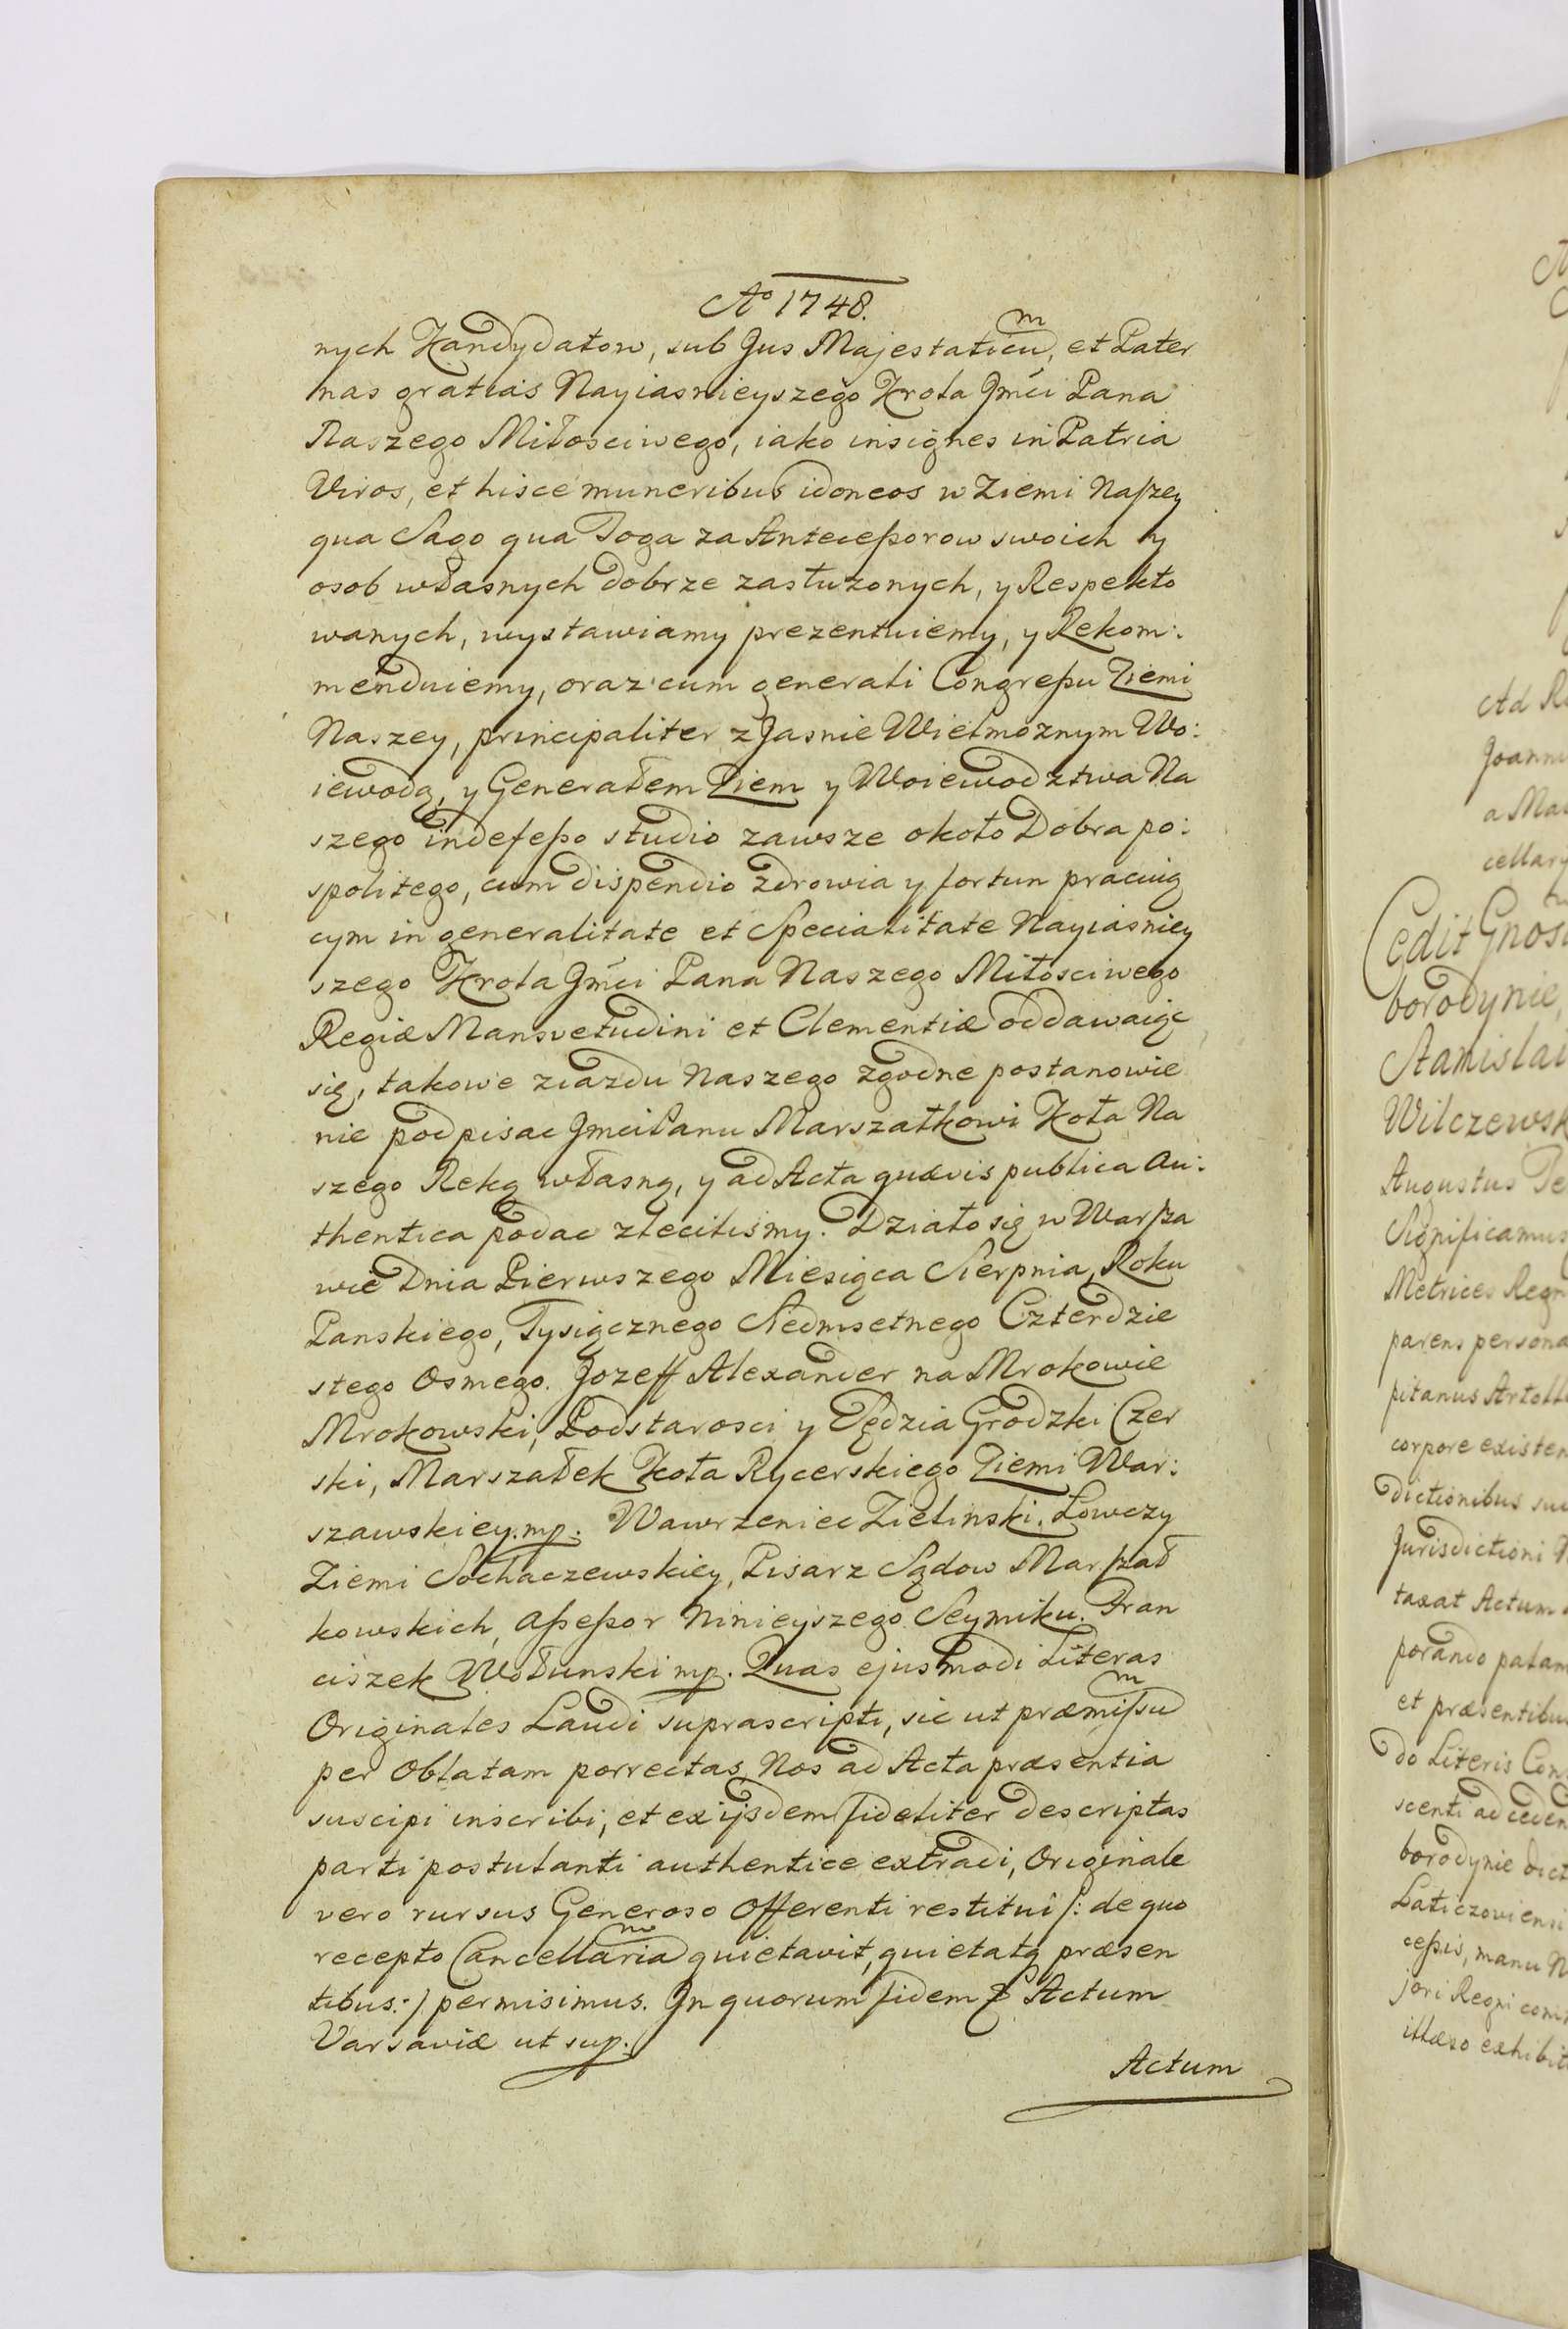 Ao 1748.
nych Kandydatow, sub Jus Majestaticũ, et Pater
nas gratias Nayiasnieyszego Krola Jmći Pana
Naszego Miłosciwego, iako insignes in Patria
Viros, et hisce muneribus idoneos w Ziemi Naſzey
qua Sago qua Toga za Anteceßorow swoich y
osob własnych dobrze zasłuzonych, y Respekto
wanych, wystawiamy prezentuiemy, y Rekom:
menduiemy, oraz cum generali Congreßu Ziemi
Naszey, principaliter z Jasnie Wielmoznym Wo:
iewodą, y Generałem Ziem y Woiewodztwa Na
szego indefeßo studio zawsze około Dobra po:
spolitego, cum dispendio zdrowia y fortun pracuią
cym in generalitate et Specialitate Nayiasniey
szego Krola Jmći Pana Naszego Miłosciwego
Regiæ Mansvetudini et Clementiæ oddawaiąc
się, takowe ziazdu Naszego zgodne postanowie
nie podpisac Jmci Panu Marszałkowi Koła Na
szego Ręką własną, y ad Acta quævis publica Au:
thentica podac zlecilismy. Działo się w Warſza
wie Dnia Pierwszego Miesiąca Sierpnia, Roku
Panskiego, Tysiącznego Siedmsetnego Czterdzie
stego Osmego. Jozeff Alexander na Mrokowie
Mrokowski, Podstarosci y Sędzia Grodzki Czer
ski, Marszałek Koła Rycerskiego Ziemi War:
szawskiey. mp. Wawrzeniec Zielinski. Łowczy
Ziemi Sochaczewskiey, Pisarz Sądow Marſzał
kowskich, Aßeßor Ninieyszego Seymiku. Fran
ciszek Wołunski mp. Quas ejusmodi Literas
Originales Laudi suprascripti, sic ut præmiſsũ
per Oblatam porrectas, Nos ad Acta præsentia
suscipi inscribi, et ex ijsdem fideliter descriptas
parti postulanti authentice extradi, Originale
vero rursus Generoso Offerenti restitui /: de quo
recepto Cancellariã quietavit, quietatq præsen
tibus :/ permisimus. In quorum fidem & Actum
Varsaviæ ut sup.
Actum
Ad
Joann
a Ma
Cedit Gnos
borodynie,
Stanislai
Wilczewsk
Augustus
Significamus
Metrices Regn
parens persona
pitanus
corpore existen
dictionibus su
Jurisdictioni
taxat Actum
porando patam
et præsentibu
do Literis Con
scenti ad ceden
borodynie dict
Laticzoviensi
ceßis, manu N
jori Regni com
illæso exhibit